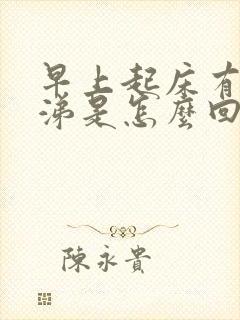 早上起床有
涕是怎麼回
陳永貴